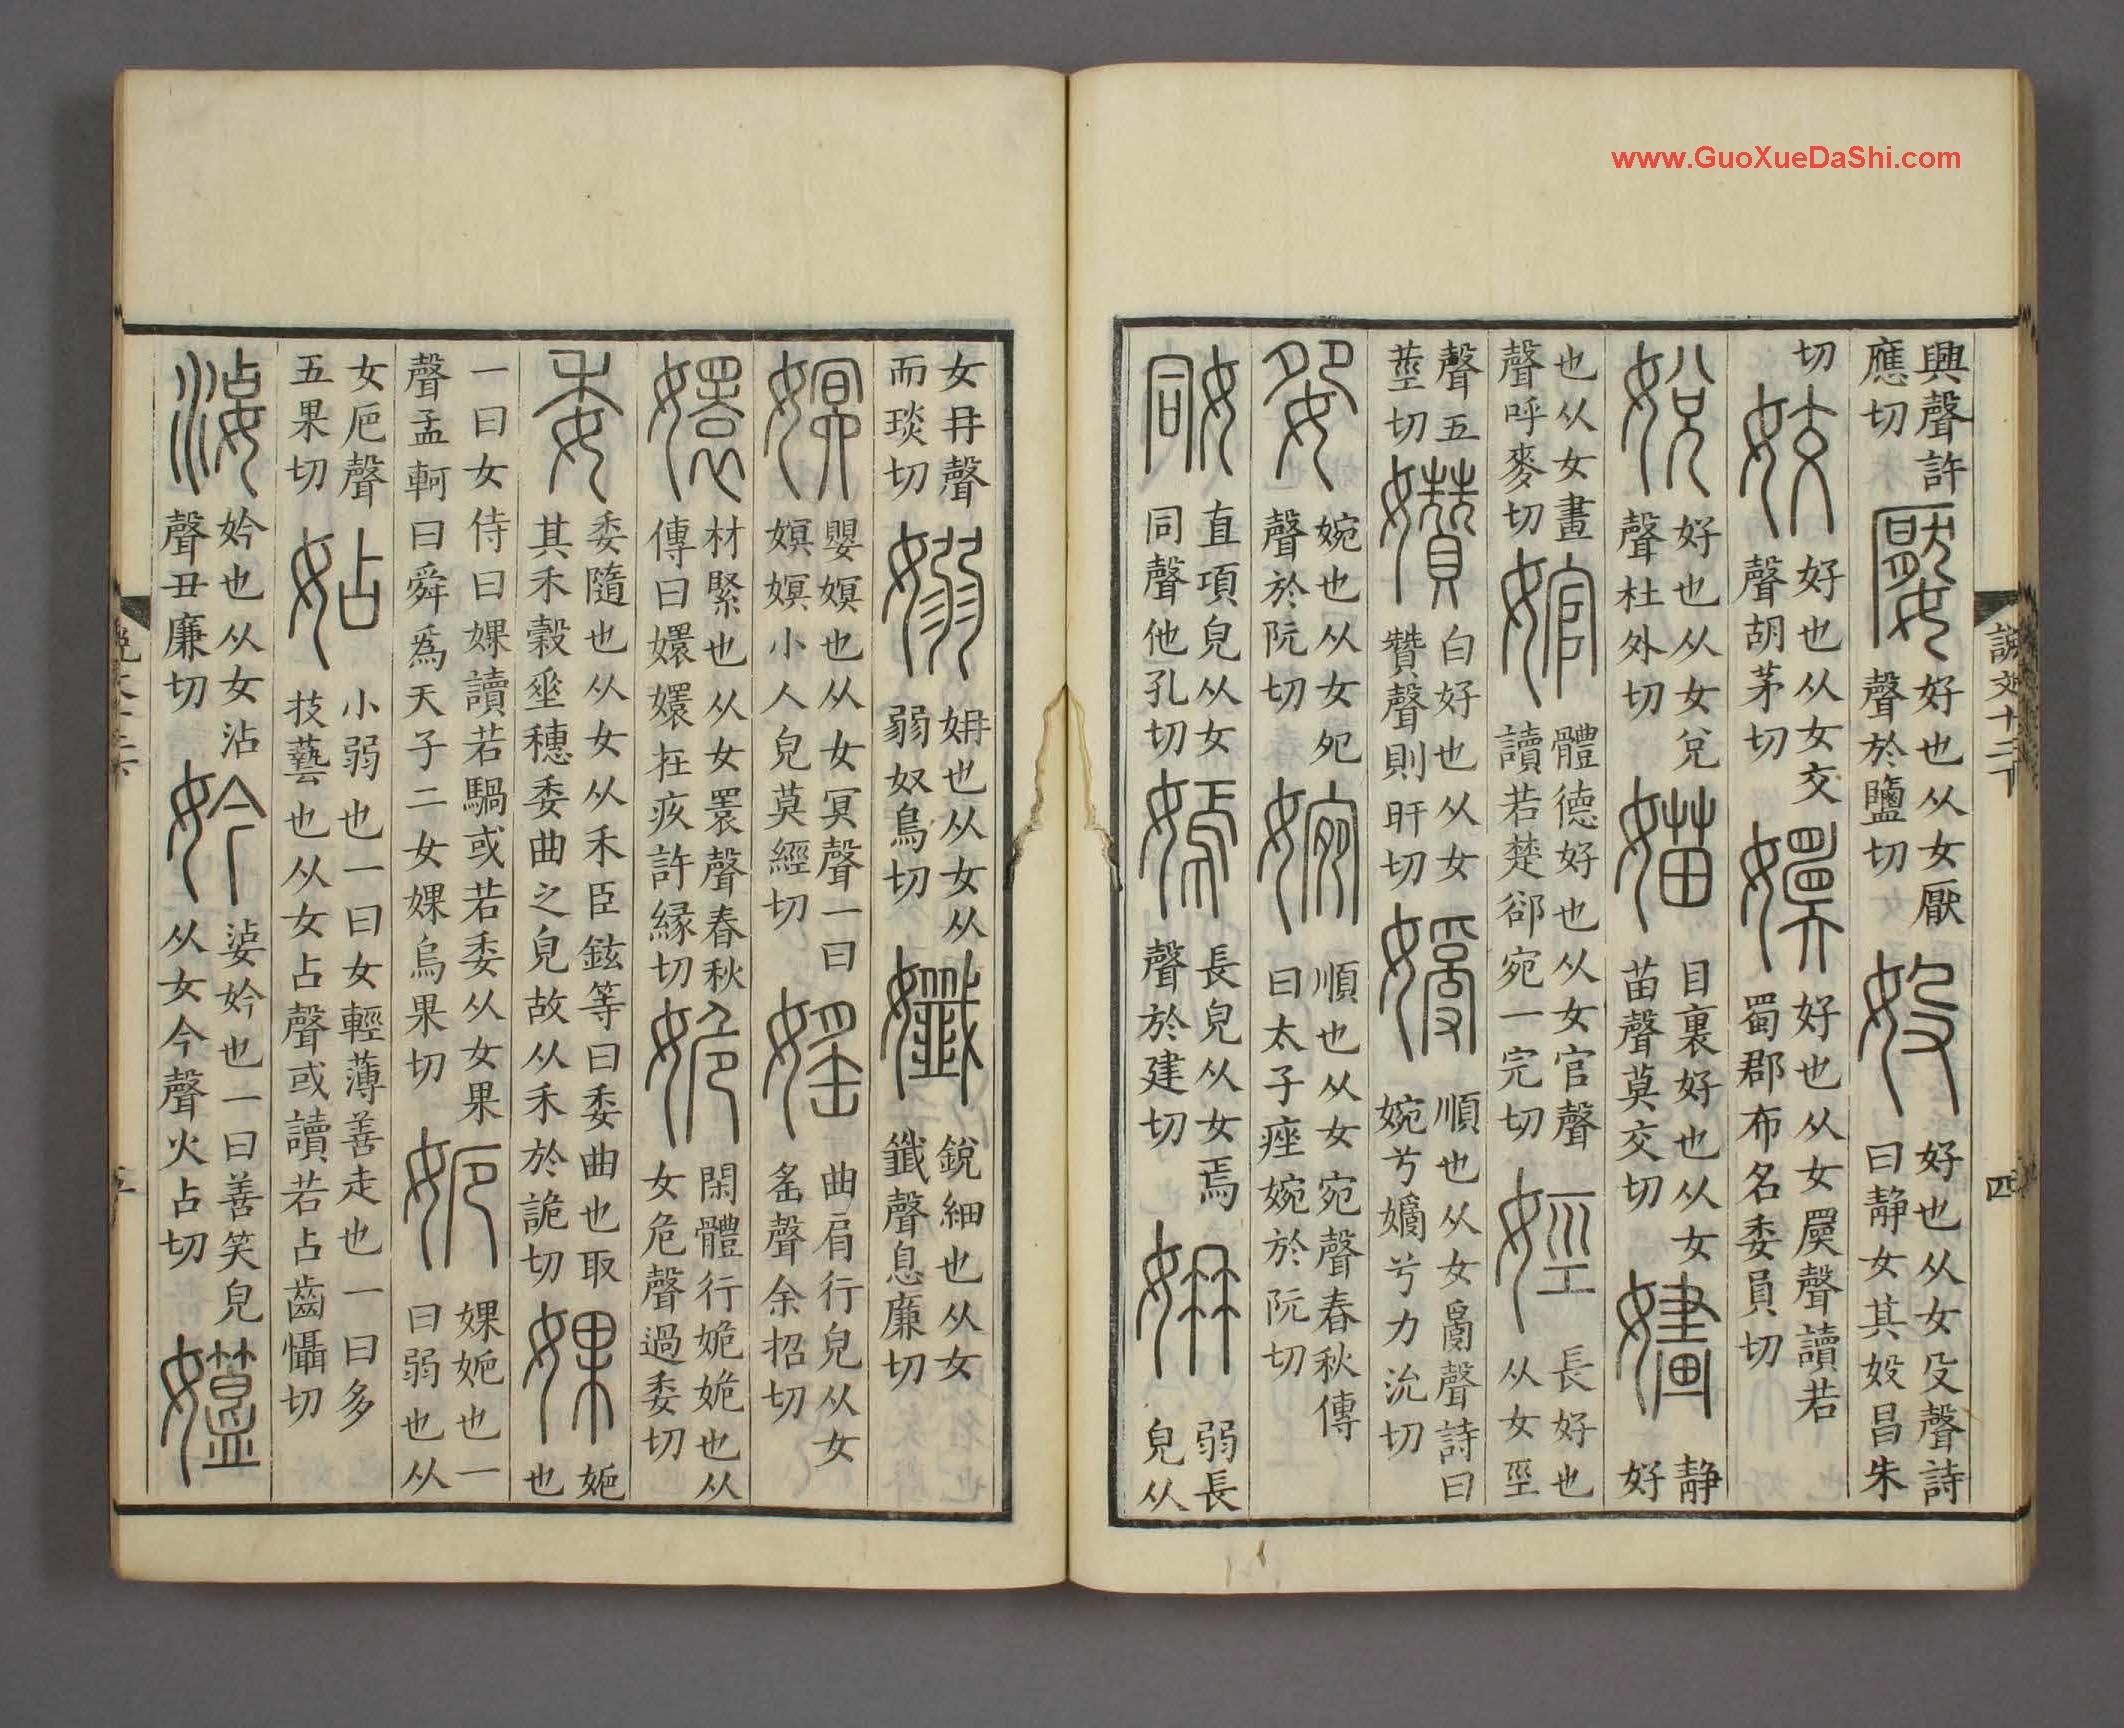 www.GuoXueDaShi.com
說文十二下
四
興聲許應切 嬮 好也从女厭聲於鹽切 㚫 好也从女殳聲詩曰靜女其㚫昌朱
切 姣 好也从女交聲胡茅切 嬽 好也从女𥇛聲讀若蜀郡布名委員切
娧 好也从女兌聲杜外切 媌 目裏好也从女苗聲莫交切 嫿 靜好
也从女畫聲呼麥切 婠 體德好也从女官聲讀若楚郤宛一完切 娙 長好也从女巠
聲五莖切 㜺 白好也从女贊聲則旰切 㜻 順也从女𤔔聲詩曰婉兮嬌兮力沇切
㚳 婉也从女夗聲於阮切 婉 順也从女宛聲春秋傳曰太子痤婉於阮切
姛 直項皃从女同聲他孔切 嫣 長皃从女焉聲於建切 姌 弱長皃从
女冄聲而琰切 嫋 姌也从女从弱奴鳥切 孅 銳細也从女韱聲息廉切
嫇 嬰嫇也从女冥聲一曰嫇嫇小人皃莫經切 媱 曲肩行皃从女䍃聲余招切
嬛 材緊也从女睘聲春秋傳曰嬛嬛在疚許緣切 姽 閑體行姽姽也从女危聲過委切
委 委隨也从女从禾臣鉉等曰委曲也取其禾穀垂穗委曲之皃故从禾於詭切 婐 婐㛂也
一曰女侍曰婐讀若騧或若委从女果聲孟軻曰舜爲天子二女婐烏果切 㛂 婐㛂也一曰弱也从
女厄聲五果切 姑 小弱也一曰女輕薄善走也一曰多技藝也从女占聲或讀若占齒懾切
婆 妗也从女沾聲丑廉切 妗 婆妗也一曰善笑皃从女今聲火占切